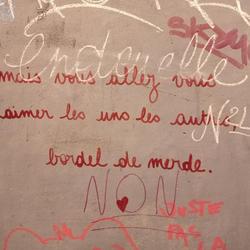 mais vous allez vous
aimer les uns les autres,
bordel de merde.
N°2
NON
JUSTE
PAS
LA